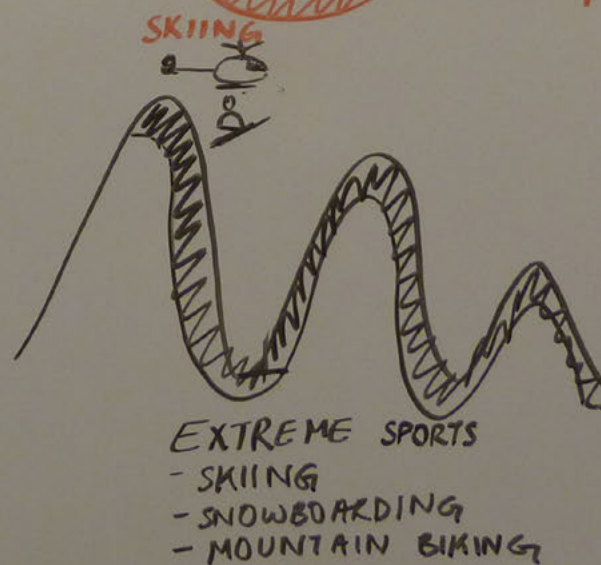 SKIING
EXTREME SPORTS
- SKIING
- SNOWBOARDING
- MOUNTAIN BIKING